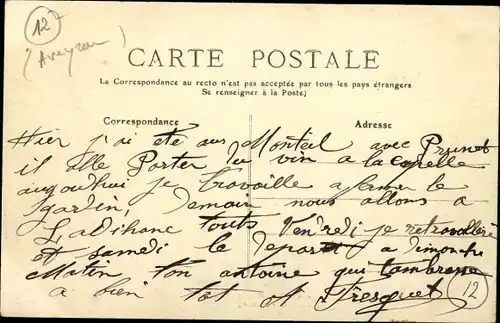 12
(Aveyron)
CARTE POSTALE
La Correspondance au recto n'est pas acceptée par tous les pays étrangers
Se renseigner à la Poste)
Correspondance
Adresse
Hier j'ai ete au Monteil avec Prunet
il alle Porter du vin a lacapelle
aujourhui je travaille a fermer le
jardin, demain nous allons a
Ladihane touts Vendredi je retravallere
et samedi le depart a Dimanche
Matin ton antoine qui tambrasse
a bien tot A Fresquet
12